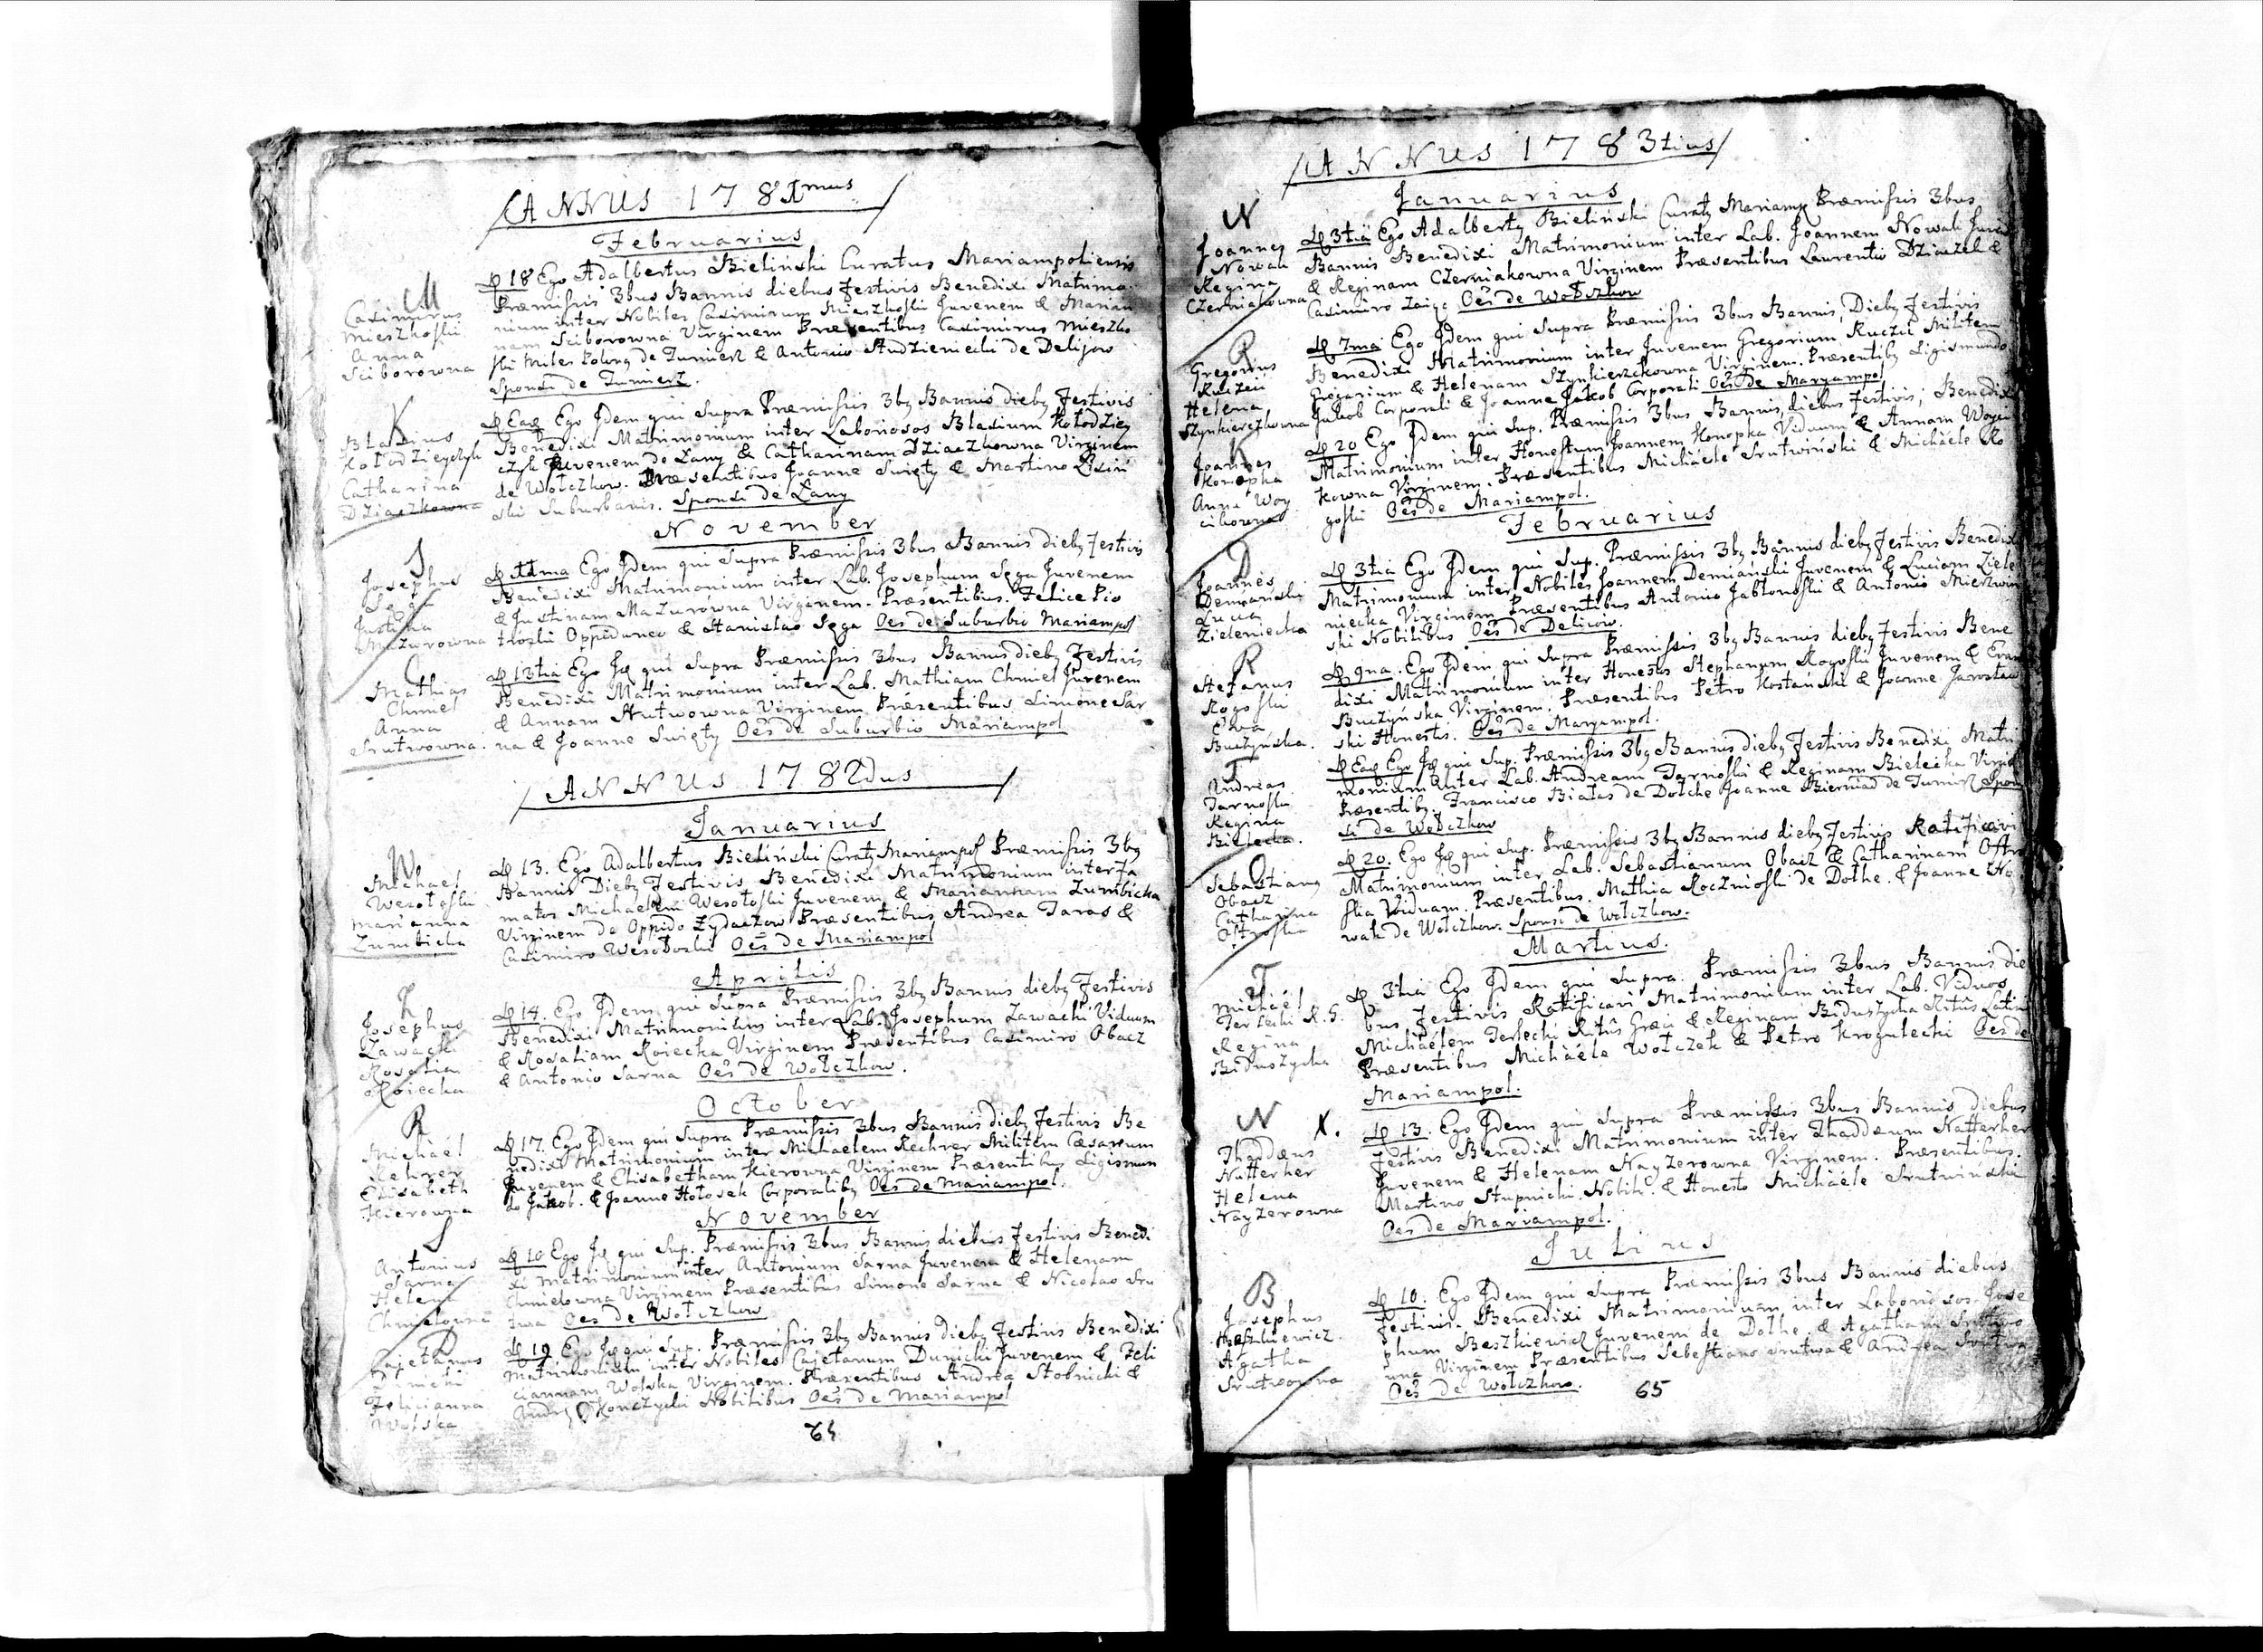 ANNUS 1781mus
Februarius
M
Casimirus
Mieszkoski
Anna
Sciborowna
D 18 Ego Adalbertus Bieliński Curatus Mariampoliensis
Præmissis 3bus Bannis diebus Festivis Benedixi Matrimo
nium inter Nobiles Casimirum Mieszkoski Juvenem & Marian
nam Sciborowna Virginem Præsentibus Casimirus Mieszko
ski Miles de Tumierz & Antonio Studzieniecki de Delijow
Sponsi de Tumierz.
K
Blasius
Kołodzieyczyk
Catharina
Dziaczkowna
D Eaq Ego Idem qui Supra Præmissis 3bq Bannis diebq Festivis
Benedixi Matrimonium inter Laboriosos Blasium Kołodziey
czyk Juvenem de Łany & Catharinam Dziaczkowna Virginem
de Wołczkow. Præsentibus Joanne Swięty & Martino
ski Suburbanis. Sponsi de Łany
November
S
Josephus
Sęga
Justina
Mazurowna
D 11ma Ego Idem qui Supra Præmissis 3bus Bannis diebq Festivis
Benedixi Matrimonium inter Lab. Josephum Sęga Juvenem
& Justinam Mazurowna Virginem. Præsentibus. Felice Pio
troski Oppidaneo & Stanislao Sęga Oēs de Suburbio Mariampol
C
Mathias
Chmiel
Anna
Srutwowna.
D 13tia Ego Iq qui Supra Præmissis 3bus Bannis diebq Festivis
Benedixi Matrimonium inter Lab. Mathiam Chmiel Juvenem
& Annam Srutwowna Virginem Præsentibus Simone Sar
na & Joanne Swięty Oēs de Suburbio Mariampol
ANNUS 1782dus
Januarius
W
Michael
Wesołoski
Marianna
Zumbicka
D 13. Ego Adalbertus Bieliński Curatq Mariampol Præmissis 3bq
Bannis Diebq Festivis Benedixi Matrimonium inter Fa
matos Michaelem Wesołoski Juvenem & Mariannam Zumbicka
Virginem de Oppido Zydaczow Præsentibus Andrea Taras &
Casimiro Wesołoski Oēs de Mariampol
Aprilis
Z
Josephus
Zawacki
Rosalia
Roiecka
D 14. Ego Idem qui Supra Præmissis 3bq Bannis diebq Festivis
Benedixi Matrimonium inter Lab. Josephum Zawacki Viduum
& Rosaliam Roiecka Virginem Præsentibus Casimiro Obacz
& Antonio Sarna Oēs de Wołczkow.
October
R
Michaël
Rehrer
Elisabeth
Kierowna
D 17. Ego Idem qui Supra Præmissis 3bus Bannis diebq Festivis Be
nedixi Matrimonium inter Michaelem Rechrer Militem Cæsareum
Juvenem & Elisabetham Kierowna Virginem Præsentibus Sigismun
do Jakob. & Joanne Hołosek Corporalibq Oēs de Mariampol.
November
S
Antonius
Sarna
Helena
Chmielowna
D 10 Ego Iq qui Sup. Præmissis 3bus Bannis diebus Festivis Benedi
xi Matrimonium inter Antonium Sarna Juvenem & Helenam
Chmielowna Virginem Præsentibus Simone Sarna & Nicolao Sru
twa Oēs de Wołczkow
D
Cajetanus
Dunicki
Felicianna
Wolska
D 19 Ego Iq qui Sup. Præmissis 3bq Bannis diebq Festivis Benedixi
Matrimonium inter Nobiles Cajetanum Dunicki Juvenem & Feli
ciannam Wolska Virginem. Præsentibus Andrea Stobnicki &
Nobilibus Oēs de Mariampol
64
ANNUS 1783tius
Januarius
N
Joannes
Nowak
Regina
Czerniakowna
D 3tia Ego Adalbertq Bieliński Curatq Mariamp Præmissis 3bus
Bannis Benedixi Matrimonium inter Lab. Joannem Nowak Juve
& Reginam Czerniakowna Virginem Præsentibus Laurentio Dziaczek &
Casimiro Zaiąc Oēs de Wołczkow
R
Gregorius
Ruczei
Helena
Szynkierczkowna
D 7ma Ego Idem qui Supra Præmissis 3bus Bannis, Diebq Festivis
Benedixi Matrimonium inter Juvenem Gregorium Ruczei Militem
Gregarium & Helenam Szynkierzckowna Virginem. Præsentibq Sigismundo
Jakob Corporali & Joanne Jakob Corporali Oēs de Maryampol
K
Joannes
Konopka
Anna Woy
cikowna
D 20 Ego Idem qui Sup. Præmissis 3bus Bannis, diebus Festivis, Benedixi
Matrimonium inter Honestum Joannem Konopka Viduum & Annam Woyci
kowna Virginem. Præsentibus Michaële Srutwiński & Michaële Ro
goski Oēs de Mariampol.
Februarius
D
Joannes
Demiański
Lucia
Zieleniecka
D 3tia Ego Idem qui Sup. Præmissis 3bq Bannis diebq Festivis Benedixi
Matrimonium inter Nobiles Joannem Demiański Juvenem & Luciam Ziele
niecka Virginem Præsentibus Antonio Jabłonoski & Antonio Mierzwin
ski Nobilibus Oēs de Deliow.
R
Stefanus
Rogoski
Ewa
Buczyńska.
D 9na. Ego Idem qui Supra Præmissis 3bq Bannis diebq Festivis Bene
dixi Matrimonium inter Honestos Stephanum Rogoski Juvenem & Evam
Buczyńska Virginem. Præsentibus Petro Kostański & Joanne Jarosław
ski Honestis. Oēs de Maryampol.
T
Andreas
Tarnoski
Regina
Bielecka.
D Eaq Ego Iq qui Sup. Præmissis 3bq Bannis diebq Festivis Benedixi Matri
monium inter Lab. Andream Tarnoski & Reginam Bielecka Virgin
Præsentibq. Francisco Białas de Dołche Joanne Bierniad de Tumirz Spon
si de Wołczkow
O
Sebastianq
Obacz
Catharina
Ostroska
D 20. Ego Iq qui Sup. Præmissis 3bq Bannis diebq Festivis Ratificavi
Matrimonium inter Lab. Sebastianum Obacz & Catharinam Ostro
ska Viduam. Præsentibus. Mathia Rocznioski de Dolhe. & Joanne No
wak de Wołczkow. Sponsi de Wołczkow.
Martius.
T
Michaël
Terlecki R.G.
Regina
Biduszycka
D 3tia Ego Idem qui Supra. Præmissis 3bus Bannis die
bus Festivis Ratificavi Matrimonium inter Lab. Viduos
Michaëlem Terlecki Ritûs Græci & Reginam Biduszycka Ritûs Latini
Præsentibus Michaële Wołczek & Petro Krogulecki Oēs de
Mariampol.
N X.
Thadæus
Natterher
Helena
Nayzerowna
D 13. Ego Idem qui Supra Præmissis 3bus Bannis diebus
Festivis Benedixi Matrimonium inter Thaddæum Natterher
Juvenem & Helenam Nayzerowna Virginem. Præsentibus.
Martino Stupnicki. Nobili. & Honesto Michaële Srutwiński
Oēs de Mariampol.
Julius
B
Josephus
Beszkiewicz.
Agatha
Srutwowna
D 10. Ego Idem qui Supra Præmissis 3bus Bannis diebus
Festivis. Benedixi Matrimonium inter Laboriosos Jose
phum Beszkiewicz Juvenem de Dolhe, & Agatham Srutwo
wna Virginem Præsentibus Sebestiano Srutwa & Andrea Srutwa
Oēs de Wołczkow.
65